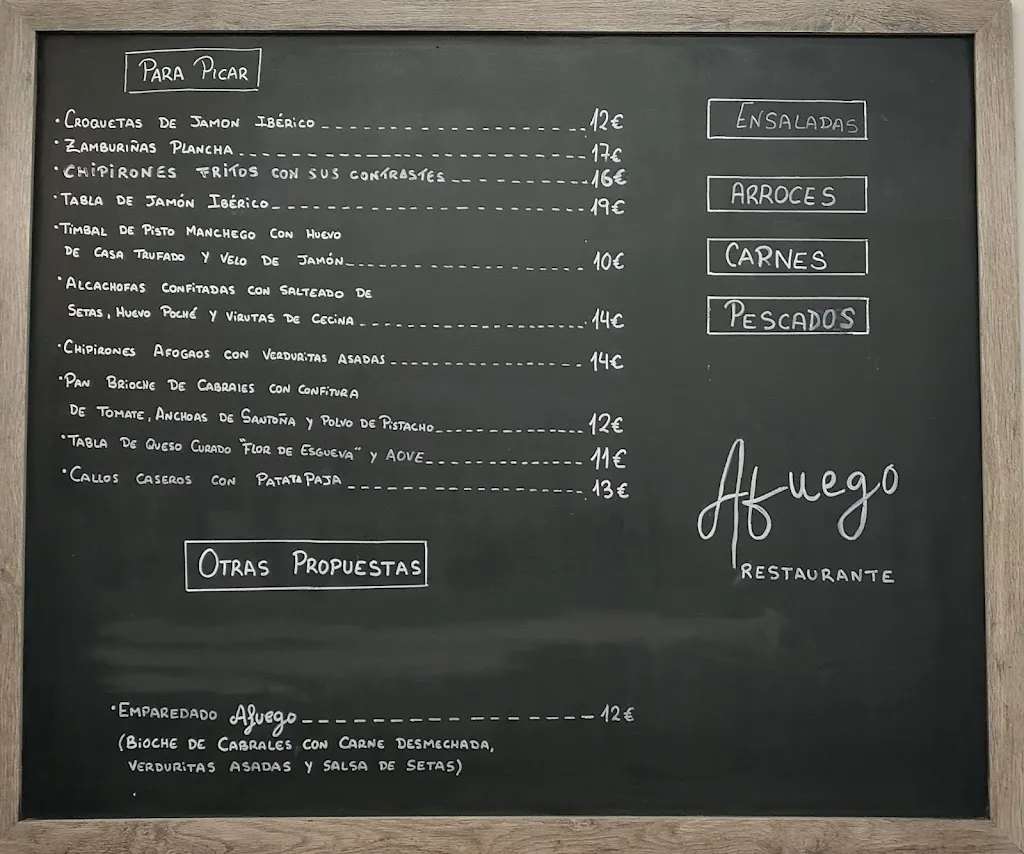 PARA PICAR
· CROQUETAS DE JAMON IBÉRICO 12€
· ZAMBURIÑAS PLANCHA 17€
· CHIPIRONES FRITOS CON SUS CONTRASTES 16€
· TABLA DE JAMÓN IBÉRICO 19€
· TIMBAL DE PISTO MANCHEGO CON HUEVO
DE CASA TRUFADO Y VELO DE JAMÓN 10€
· ALCACHOFAS CONFITADAS CON SALTEADO DE
SETAS, HUEVO POCHÉ Y VIRUTAS DE CECINA 14€
· CHIPIRONES AFOGAOS CON VERDURITAS ASADAS 14€
· PAN BRIOCHE DE CABRALES CON CONFITURA
DE TOMATE, ANCHOAS DE SANTOÑA Y POLVO DE PISTACHO 12€
· TABLA DE QUESO CURADO "FLOR DE ESGUEVA" Y AOVE 11€
· CALLOS CASEROS CON PATATA PAJA 13€
OTRAS PROPUESTAS
· EMPAREDADO Afuego 12€
(BIOCHE DE CABRALES CON CARNE DESMECHADA,
VERDURITAS ASADAS Y SALSA DE SETAS)
ENSALADAS
ARROCES
CARNES
PESCADOS
Afuego
RESTAURANTE